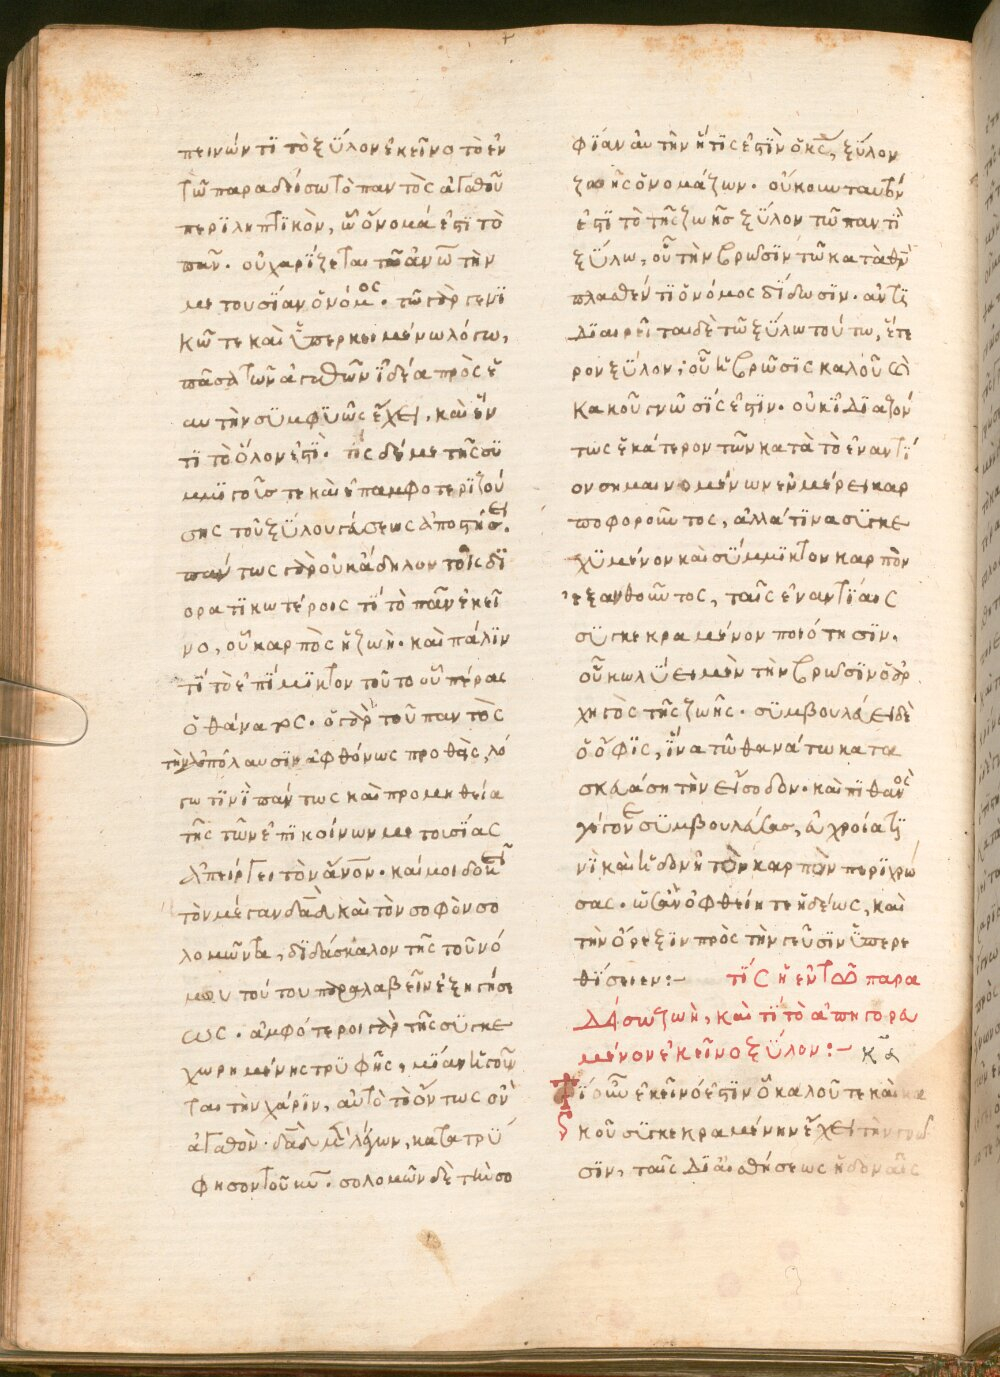 πεινώντϊ τὸ ξΰλον ἐκεῖνο τὸ ἐν
τῶ παραδείσω τὸ παντὸς ἀγαθοῦ
περϊληπτϊκὸν, ὧ ὄνομά ἐστι τὸ
πᾶν. οὐ χαρίζεται τῶ ἀνῶ τὴν
μετουσίαν ὁ νόμος. τῶ γὰρ γενϊ
κῶ τε καὶ ὑπερκειμένω λόγω,
πᾶσα τῶν ἀγαθῶν ἰδέα πρὸς ἑ
αυτὴν συμφυῶς ἔχει, καὶ ἕν
τϊ τὸ ὅλον ἐστὶ. τίς δέ με τῆς συ
μμϊγοῦς τε καὶ ἐπαμφοτεριζού
σης τοῦ ξΰλου γεύσεως ἀποστήσει.
πάντως γὰρ οὐκ ἄδηλον τοῖς δϊ
ορατϊκωτέροις τί τὸ πᾶν ἐκεῖ
νο, οὗ καρπὸς ἡ ζωὴ. καὶ πάλϊν
τί τὸ ἐπίμϊκτον τοῦτο οὗ πέρας
ὁ θάνατος. ὁ γὰρ τοῦ παντὸς
τὴν ἀπόλαυσϊν ἀφθόνως προθεὶς, λό
γω τϊνὶ πάντως καὶ προμηθεία
τῆς τῶν ἐπϊκοίνων μετουσίας
ἀπείργει τὸν ἄνον. καί μοι δοκεῖ
τὸν μέγαν δᾱδ καὶ τὸν σοφὸν σο
λομῶντα, δϊδάσκαλον τῆς τοῦ νό
μου τούτου παραλαβεῖν ἐξηγήσε
ως. ἀμφότεροι γὰρ τῆς συγκε
χωρημένης τρυφῆς, μίαν ἡγοῦν
ται τὴν χάριν, αὐτὸ τὸ ὄντως ὂν
ἀγαθὸν. δᾱδ μὲν λέγων, κατατρύ
φησον τοῦ κῡ. σολομῶν δὲ τὴν σο
φϊαν αυτὴν ἥτϊς ἐστὶν ὁ κς̄, ξΰλον
ζωῆς ὀνομάζων. οὐκοῦν ταυτόν
ἐστι τὸ τῆς ζωῆς ξΰλον τῶ παντϊ
ξΰλω, οὗ τὴν βρῶσϊν τῶ κατὰ θν̄
πλασθέντϊ ὁ νόμος δίδωσϊν. ἀντϊ
Δϊαιρεῖται δὲ τῶ ξΰλω τούτω, ἕτε
ρον ξΰλον, οὗ ἡ βρῶσϊς καλοῦ καὶ
κακοῦ γνῶσίς ἐστϊν. οὐκ ϊΔϊαζόν
τως ἑκάτερον τῶν κατὰ τὸ ἐναντί
ον σημαινομένων ἐν μέρει καρ
ποφοροῦντος, ἀλλά τϊνα συγκε
χυμένον καὶ σύμμϊκτον καρπὸν
ἐξανθοῦντος, ταῖς ἐναντίαις
συγκεκραμένον ποιότησϊν.
οὗ κωλΰει μὲν τὴν βρῶσϊν ὁ ἀρ
χηγὸς τῆς ζωῆς. συμβουλεύει δὲ
ὁ ὄφϊς, ἵνα τῶ θανάτω κατα
σκευάση τὴν εἴσοδον. καὶ πϊθανὸς
γέγονε συμβουλεύσας, εὐχροία τϊ
νὶ καὶ ἡδονῆ τὸν καρπὸν περϊχρώ
σας. ὡς ἂν ὀφθείη τε ἡδέως, καὶ
τὴν ὄρεξϊν πρὸς τὴν γεῦσϊν ὑπερε
θίσειεν:- τίς ἡ ἐν τῶ παρα
Δείσω ζωὴ, καὶ τί τὸ ἀπηγορευ
μένον ἐκεῖνο ξΰλον:- κᾱ
Τί οὖν ἐκεῖνό ἐστϊν ὃ καλοῦ τε καὶ κα
κοῦ συγκεκραμένην ἔχει τὴν γνῶ
σϊν, ταῖς Δϊ αἰσθήσεως ἡδοναῖς